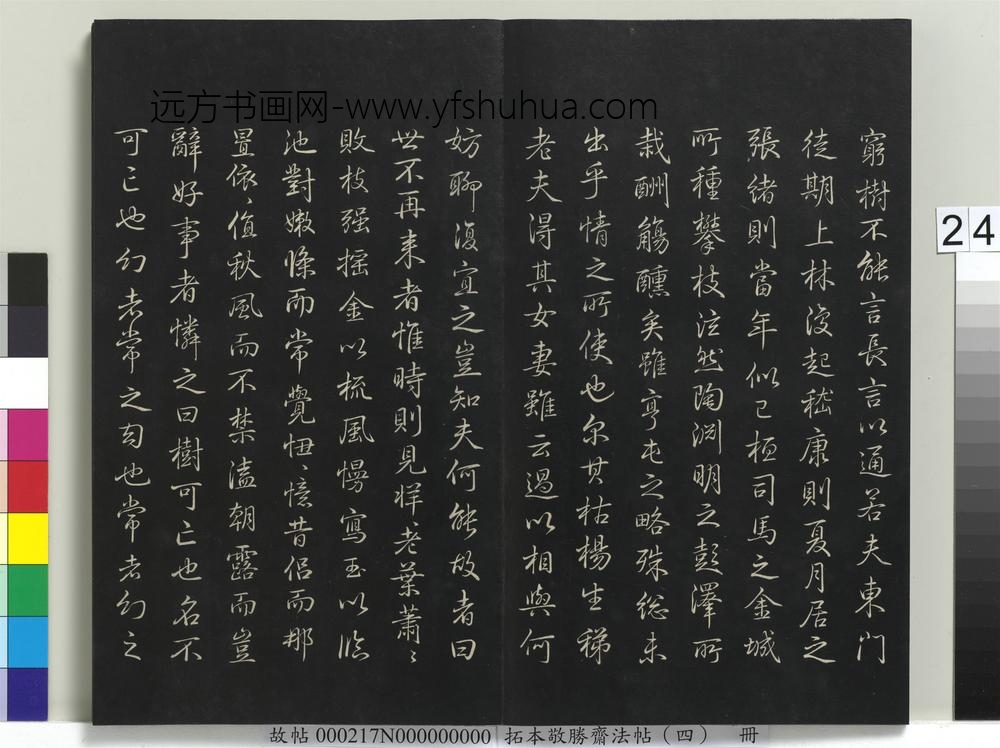 远方书画网-www.yfshuhua.com
窮樹不能言長言以通若夫東門
徒期上林復起嵇康則夏月居之
張緒則當年似已桓司馬之金城
所種攀枝泫然陶淵明之彭澤所
栽酬觴醺矣雖亨屯之略殊總未
出乎情之所使也尔其枯楊生稊
老夫得其女妻雖云過以相與何
妨聊復宜之豈知夫何能故者曰
世不再来者惟時則見悴悴老葉蕭蕭
敗枝强摇金以梳風慢寫玉以臨
池對嫩條而常覺忸忸憶昔侣而那
置依依值秋風而不禁溘朝露而豈
辭好事者憐之曰樹可亡也名不
可亡也幻者常之勾也常者幻之
24
故帖 000217N000000000 拓本敬勝齋法帖（四） 冊